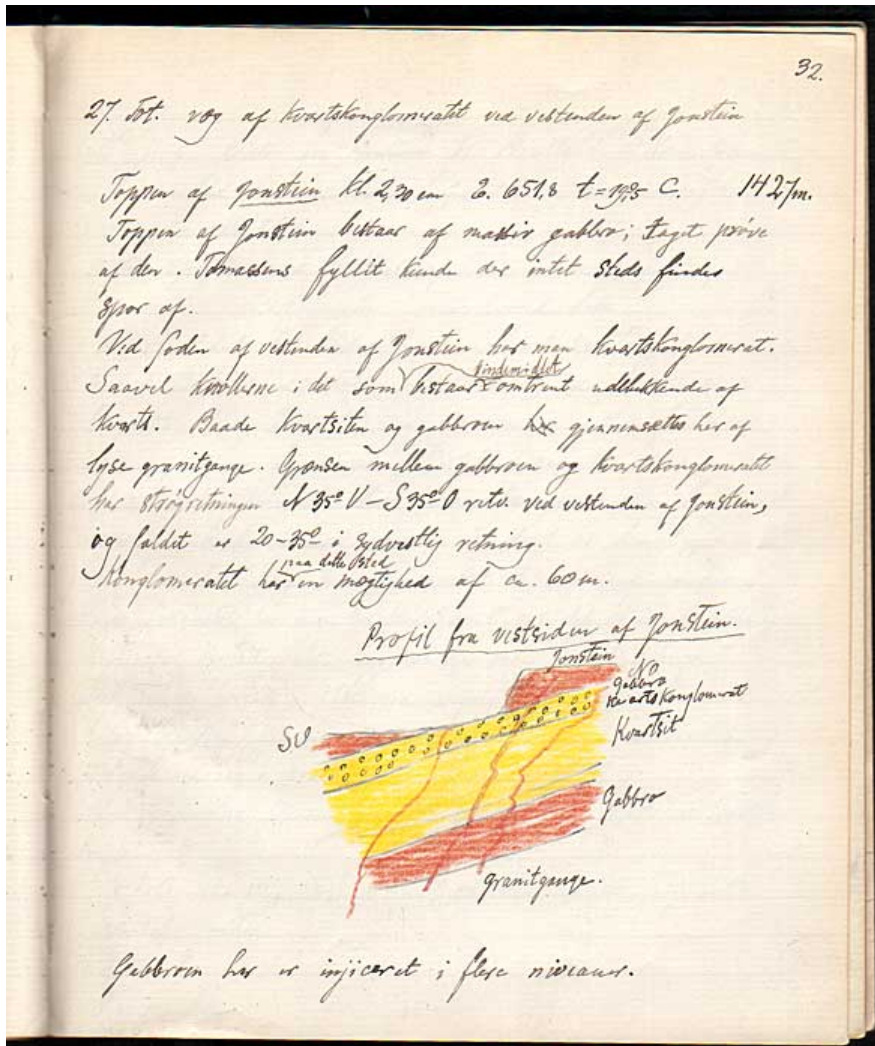 32.
27. Fot. væg af kvartskonglomeratet ved vestenden af Jonstein
Toppen af Jonstein kl. 2,30 em 651,8 t = 19,°5 C. 1427m.
Toppen af Jonstein bestaar af massiv gabbro; taget prøve
af den. Tomassens fyllit kunde der intet steds findes
spor af.
Ved foden af vestenden af Jonstein har man kvartskonglomerat.
bindemidlet
Saavel knollerne i det som bestaar omtrent udelukkende af
kvarts. Baade kvartsiten og gabbroen gjennemsættes her af
lyse granitgange. Grænsen mellem gabbroen og kvartskonglomeratet
har strøgretningen N 35º V – S 35º O retv. ved vestenden af Jonstein,
og faldet er 20–35º i sydvestlig retning.
paa dette sted
Konglomeratet har en mægtighed af ca. 60 m.
Profil fra vestsiden af Jonstein.
Jonstein
NO
Gabbro
Kvartskonglomerat
SV
Kvartsit
Gabbro
granitgange.
Gabbroen her er injiceret i flere niveauer.